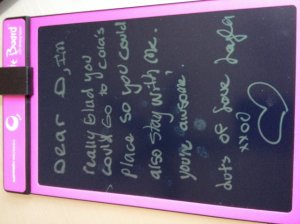 Dear D, I'm
really Glad you
could Go to Lola's
place so you could
also stay with me.
you're awsome.
Lots of Love Layla
xxoo
Board